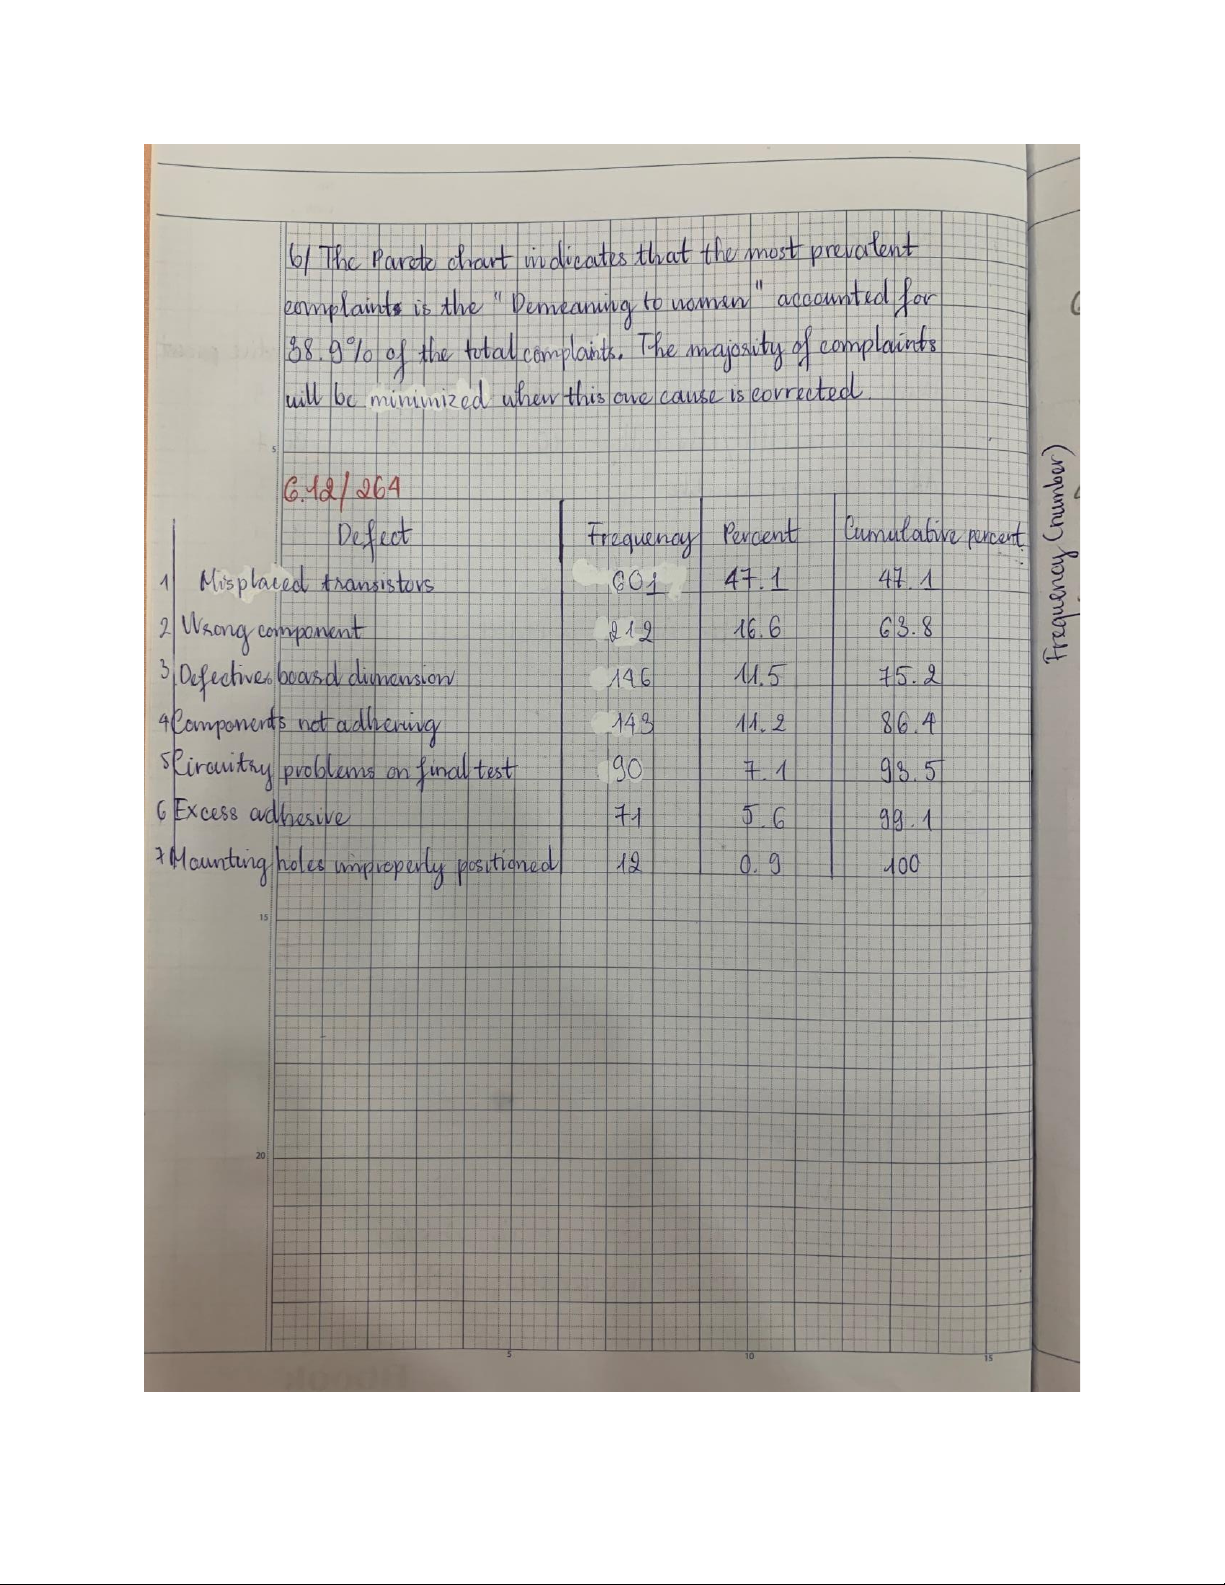 b/ The Pareto chart indicates that the most prevalent
complaints is the "Demeaning to women" accounted for
38.9% of the total complaints. The majority of complaints
will be minimized when this one cause is corrected.
5
6.12/264
Defect Frequency Percent Cumulative percent
1 Misplaced transistors 601 47.1 47.1
2 Wrong component 212 16.6 63.8
3 Defective board dimension 146 11.5 75.2
4 Components not adhering 143 11.2 86.4
5 Circuitry problems on final test 90 7.1 93.5
6 Excess adhesive 71 5.6 99.1
7 Mounting holes improperly positioned 12 0.9 100
15
20
5 10 15
Frequency (number)